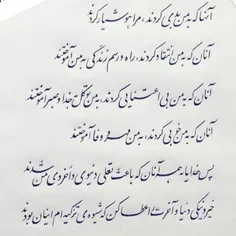 آنها که به من بدی کردند، مرا هوشیار کردند
آنان که به من انتقاد کردند، راه و رسم زندگی به من آموختند
آنان که به من بی اعتنایی کردند، به من توکل به خدا و صبر آموختند
آنان که به من خوبی کردند، به من مهر و وفا آموختند
پس خدایا به همه آنان که باعث تعالی دنیوی و اخروی من شدند
خیر و نیکی دنیا و آخرت عطا کن که